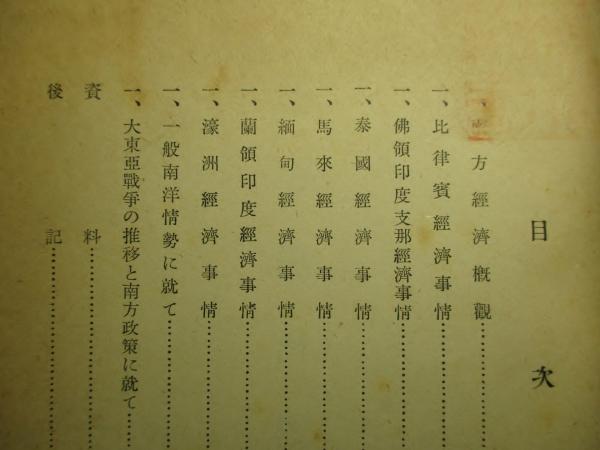 目次
一、南方經濟概觀
一、比律賓經濟事情
一、佛領印度支那經濟事情
一、泰國經濟事情
一、馬來經濟事情
一、緬甸經濟事情
一、蘭領印度經濟事情
一、濠洲經濟事情
一、一般南洋情勢に就て
一、大東亞戰爭の推移と南方政策に就て
資料
後記